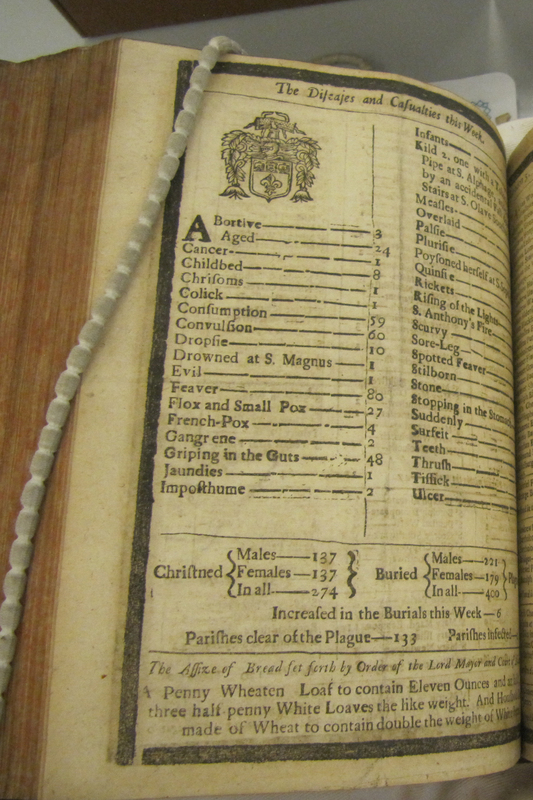 The Diseases and Casualties this Week.
ABortive 3
Aged 24
Cancer 1
Childbed 8
Chrisoms 1
Colick 1
Consumption 59
Convulsion 60
Dropsie 10
Drowned at S. Magnus 1
Evil 1
Feaver 80
Flox and Small Pox 27
French-Pox 4
Gangrene 2
Griping in the Guts 48
Jaundies 1
Imposthume 2
Infants
Kild 2. one with a
Pipe at S. Alphage
by an accidental
Stairs at S. Olave
Measles
Overlaid
Palsie
Plurisie
Poysoned herself at S.
Quinsie
Rickets
Rising of the Lights
S. Anthony's Fire
Scurvy
Sore-Leg
Spotted Feaver
Stilborn
Stone
Stopping in the Stomach
Suddenly
Surfeit
Teeth
Thrush
Tissick
Ulcer
Christned { Males 137 Females 137 In all 274 }
Buried { Males 221 Females 179 In all 400
Increased in the Burials this Week 6
Parishes clear of the Plague 133 Parishes infected
The Assize of Bread set forth by Order of the Lord Mayor and Court of
A Penny Wheaten Loaf to contain Eleven Ounces and
three half-penny White Loaves the like weight. And
made of Wheat to contain double the weight of